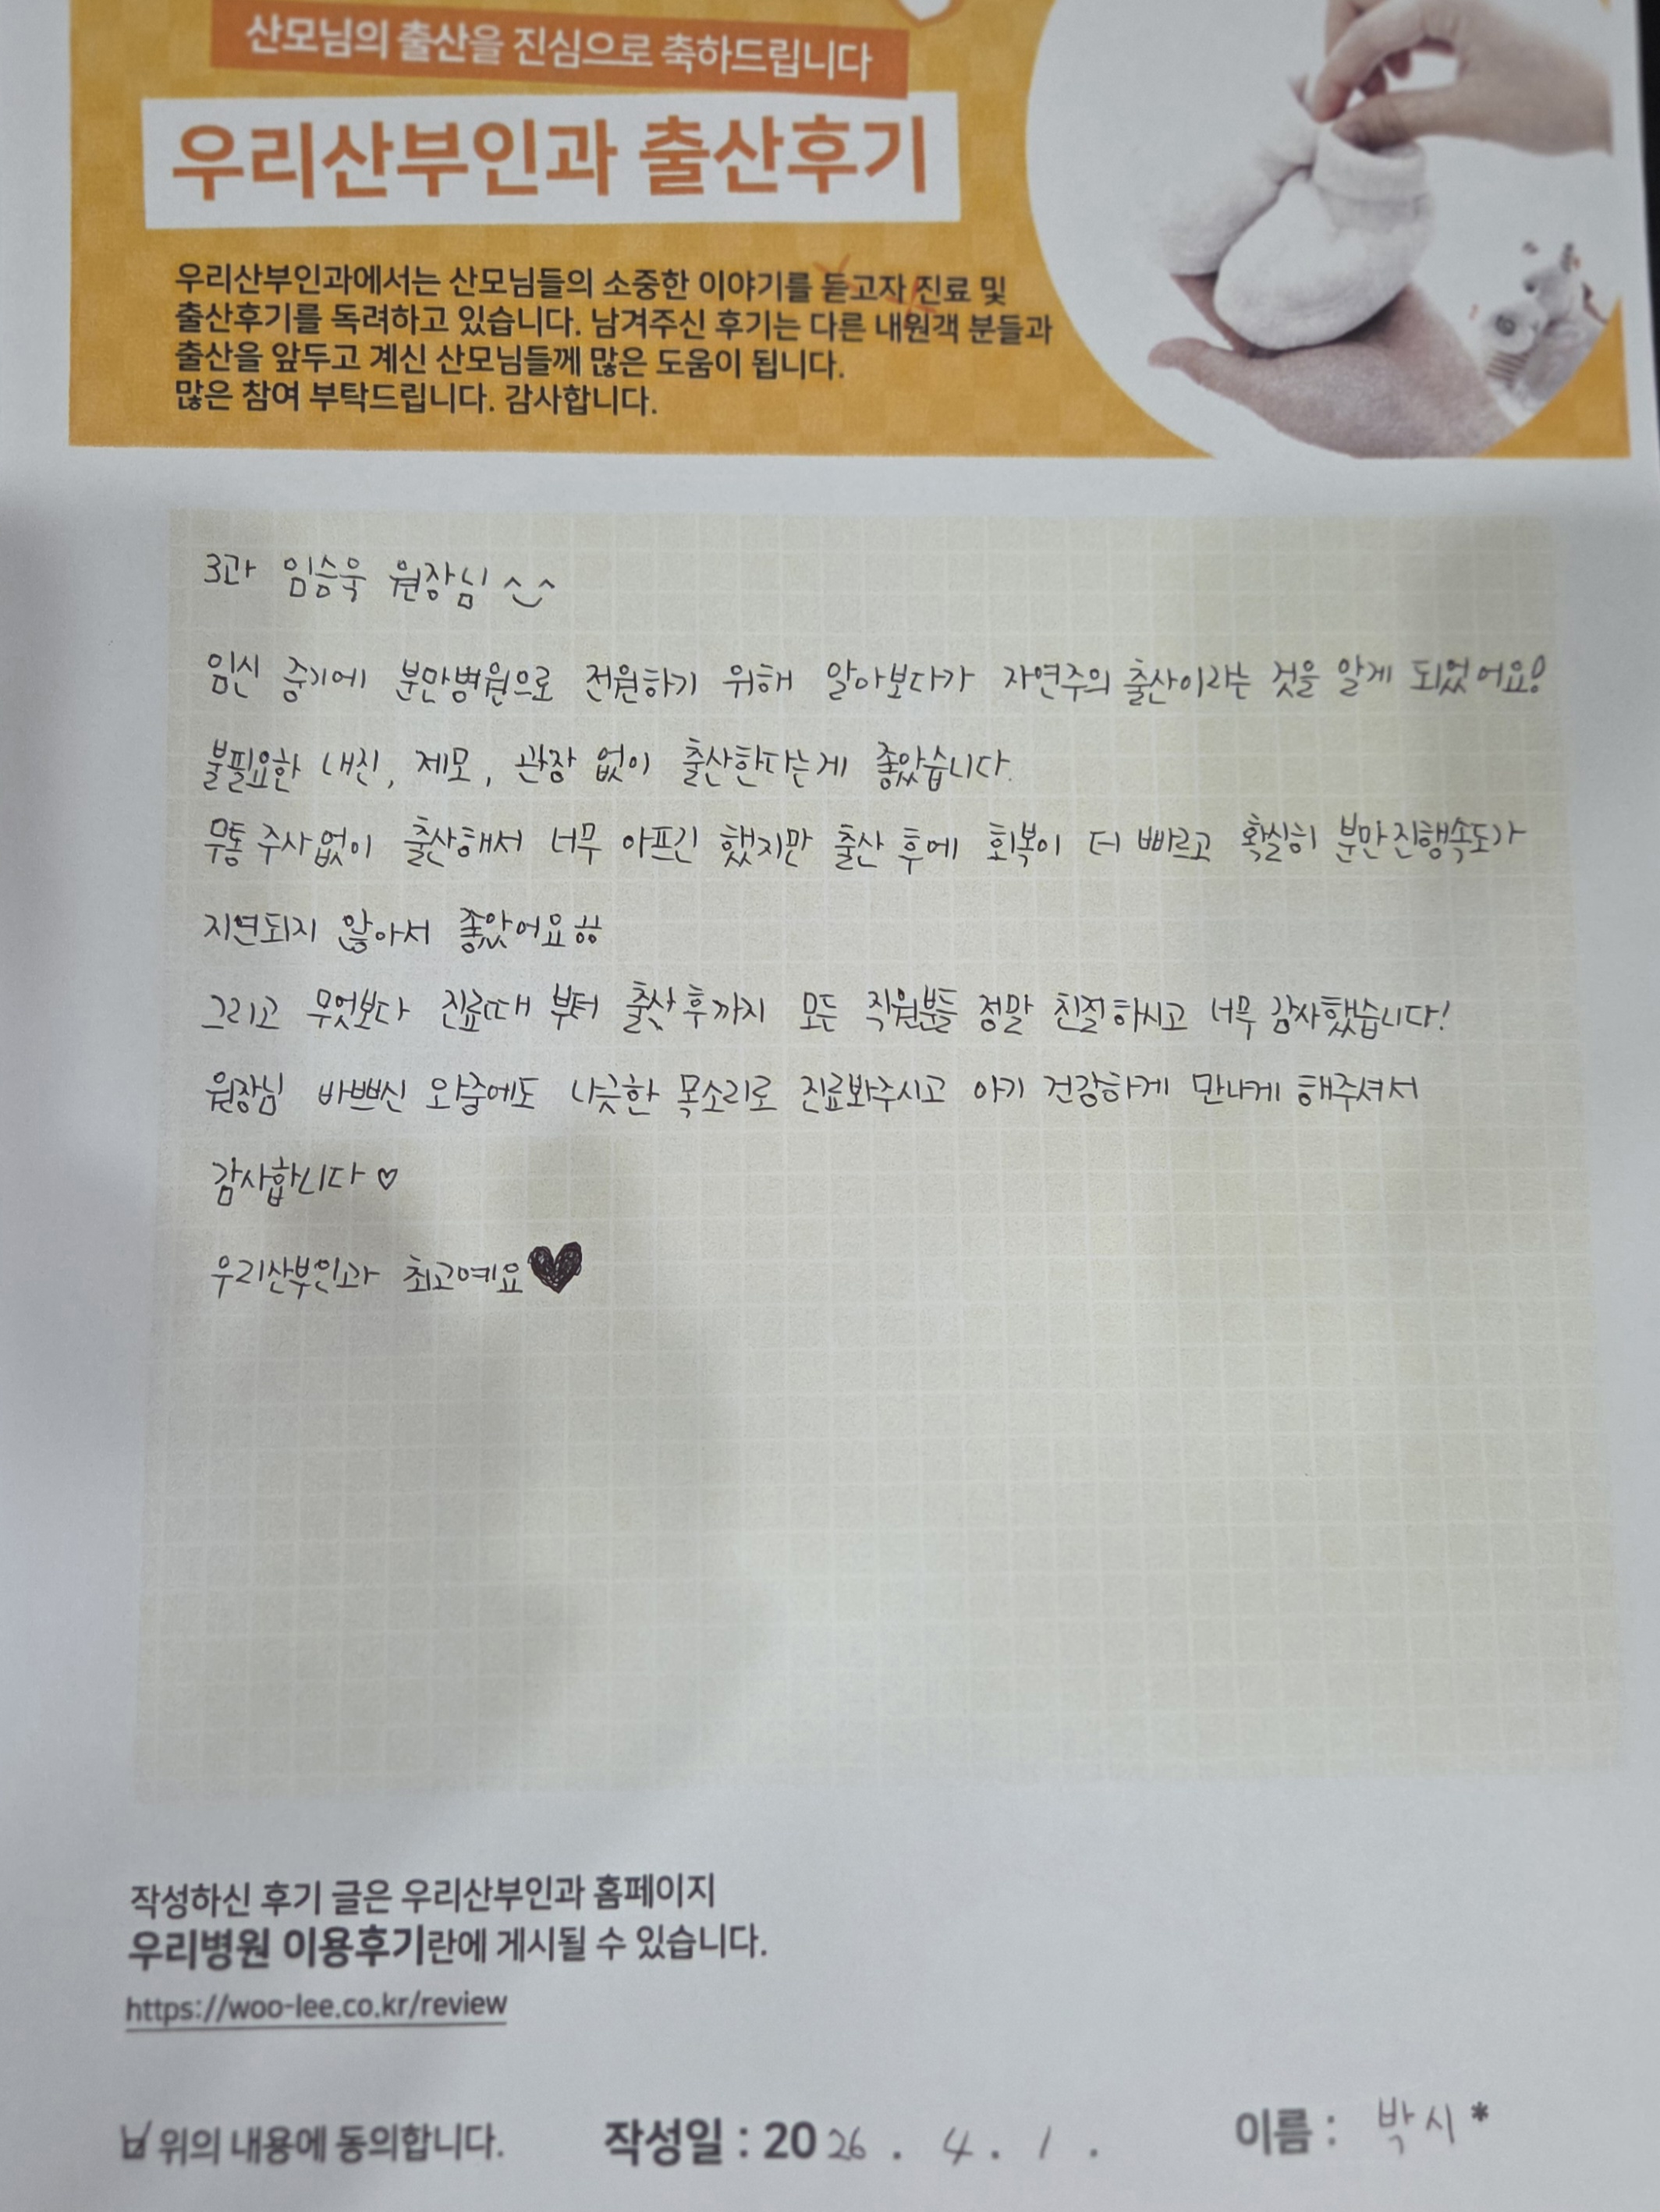 산모님의 출산을 진심으로 축하드립니다
우리산부인과 출산후기
우리산부인과에서는 산모님들의 소중한 이야기를 듣고자 진료 및
출산후기를 독려하고 있습니다. 남겨주신 후기는 다른 내원객 분들과
출산을 앞두고 계신 산모님들께 많은 도움이 됩니다.
많은 참여 부탁드립니다. 감사합니다.
3과 임승욱 원장님 ^_^
임신 중기에 분만병원으로 전원하기 위해 알아보다가 자연주의 출산이라는 것을 알게 되었어요!
불필요한 내진, 제모, 관장 없이 출산한다는게 좋았습니다.
무통 주사없이 출산해서 너무 아프긴 했지만 출산 후에 회복이 더 빠르고 확실히 분만진행속도가
지연되지 않아서 좋았어요ㅎㅎ
그리고 무엇보다 진료때 부터 출산 후까지 모든 직원분들 정말 친절하시고 너무 감사했습니다!
원장님 바쁘신 와중에도 나긋한 목소리로 진료봐주시고 아기 건강하게 만나게 해주셔서
감사합니다 ♡
우리산부인과 최고예요 ♥
작성하신 후기 글은 우리산부인과 홈페이지
우리병원 이용후기란에 게시될 수 있습니다.
https://woo-lee.co.kr/review
☑ 위의 내용에 동의합니다. 작성일 : 2026 . 4 . 1 . 이름 : 박시*